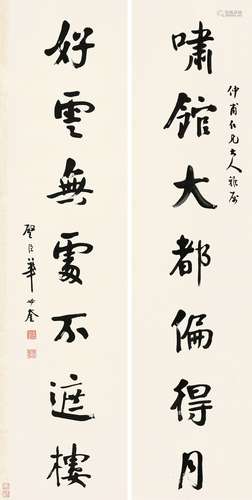 仲甫仁兄大人雅屬
嘯館大都偏得月
好雲無處不遮樓
璧臣華世奎